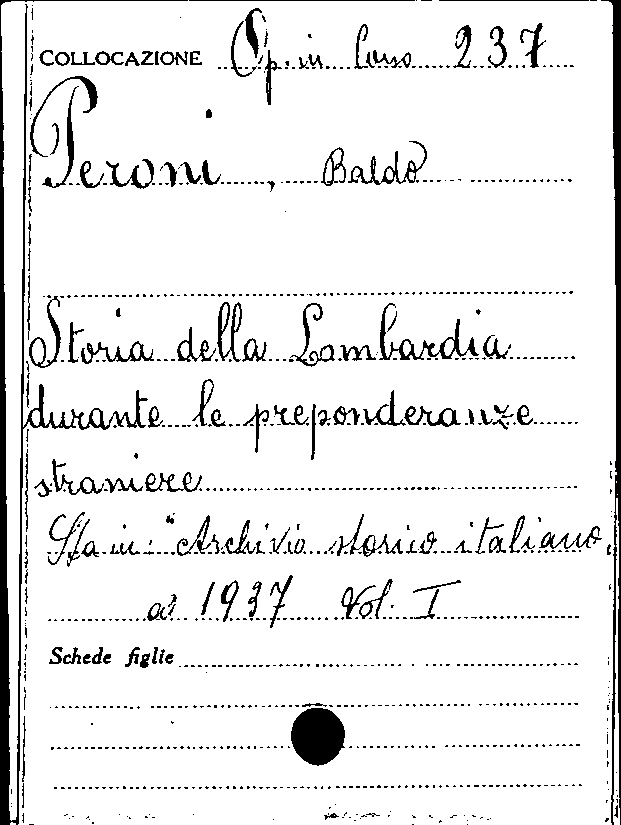 COLLOCAZIONE Op. in Cons 237
Peroni, Baldo
Storia della Lombardia
durante le preponderanze
straniere
Sta in: "Archivio storico italiano,
a: 1937 Vol. I
Schede figlie